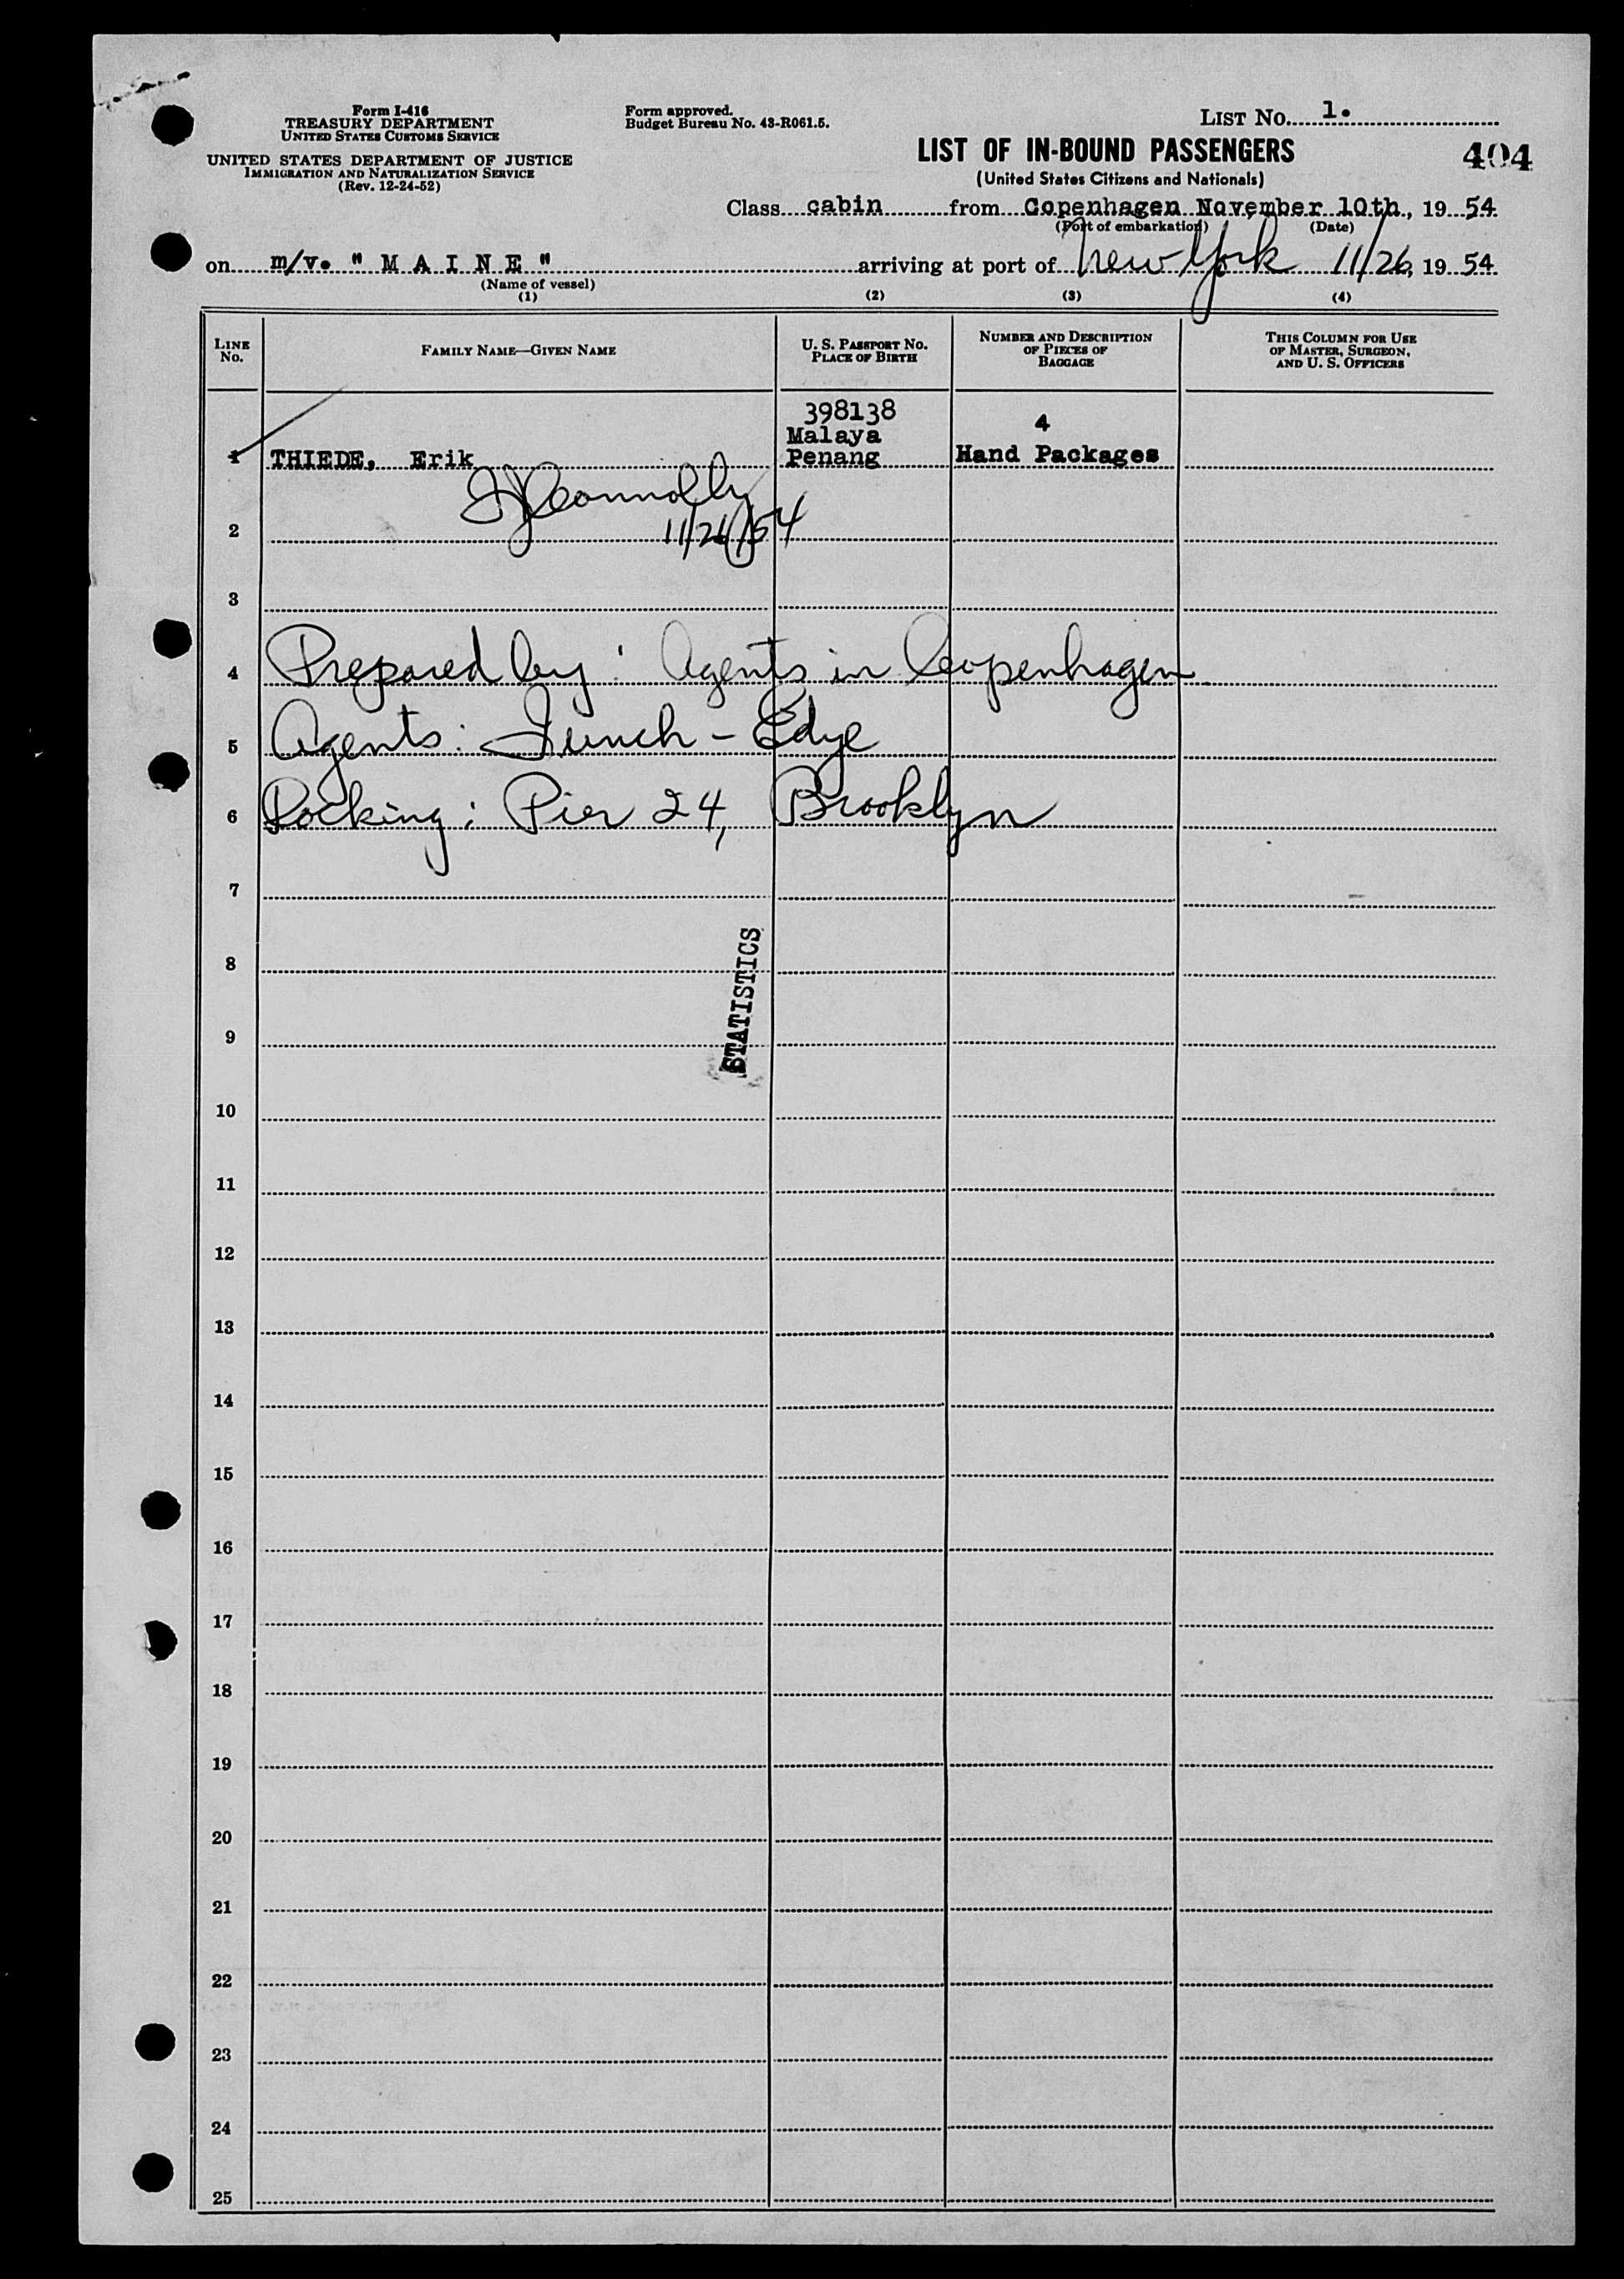 Form I-416
TREASURY DEPARTMENT
UNITED STATES CUSTOMS SERVICE
UNITED STATES DEPARTMENT OF JUSTICE
IMMIGRATION AND NATURALIZATION SERVICE
(Rev. 12-24-52)
Form approved.
Budget Bureau No. 43-R061.5.
LIST No. 1.
LIST OF IN-BOUND PASSENGERS
(United States Citizens and Nationals)
404
Class cabin from Copenhagen November 10th, 19 54
(Port of embarkation) (Date)
on m/v. " M A I N E " arriving at port of New York 11/26, 19 54
(Name of vessel)
(1) (2) (3) (4)
LINE No.
FAMILY NAME—GIVEN NAME
U. S. PASSPORT No.
PLACE OF BIRTH
NUMBER AND DESCRIPTION
OF PIECES OF
BAGGAGE
THIS COLUMN FOR USE
OF MASTER, SURGEON,
AND U. S. OFFICERS
398138
Malaya 4
1 THIEDE, Erik Penang Hand Packages
Connolly
2 11/26/54
3
4 Prepared by: Agents in Copenhagen
5 Agents: Funch - Edye
6 Docking: Pier 24, Brooklyn
7
8
STATISTICS
9
10
11
12
13
14
15
16
17
18
19
20
21
22
23
24
25